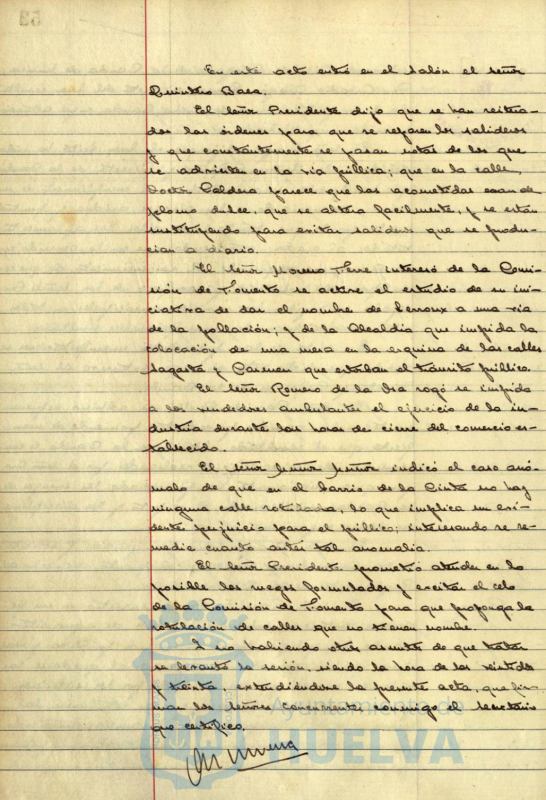 53
En este acto entró en el salón el señor
Quintero Baea.
El señor Presidente dijo que se han reitera-
dos las órdenes para que se reparen los salideros
y que constantemente se pasan notas de los que
se advierten en la vía pública; que en la calle,
Doctor Caldera parece que las acometidas eran de
plomo dulce, que se altera facilmente, y se están
sustituyendo para evitar salideros que se produ-
cian a diario.
El señor Moreno Ferre interesó de la Comi-
sión de Fomento se active el estudio de su ini-
ciativa de dar el nombre de Lerroux a una vía
de la población; y de la Alcaldía que impida la
colocación de una mesa en la esquina de las calles
Sagasta y Carmen que estorban el tránsito público.
El señor Romero de la Osa rogó se impida
a los vendedores ambulantes el ejercicio de la in-
dustria durante las horas de cierre del comercio es-
tablecido.
El señor Muñoz Muñoz indicó el caso anó-
malo de que en el barrio de la Cinta no hay
ninguna calle rotulada, lo que implica un evi-
dente perjuicio para el público; interesando se re-
medie cuanto antes tal anomalía.
El señor Presidente prometió atender en lo
posible los ruegos formulados y excitar el celo
de la Comisión de Fomento para que proponga la
rotulación de calles que no tienen nombre.
Y no habiendo otros asuntos de que tratar
se levantó la sesión, siendo la hora de las veintidos
y treinta, extendiéndose la presente acta, que fir-
man los señores concurrentes conmigo el secretario
que certifico.
Ayuntamiento de
HUELVA